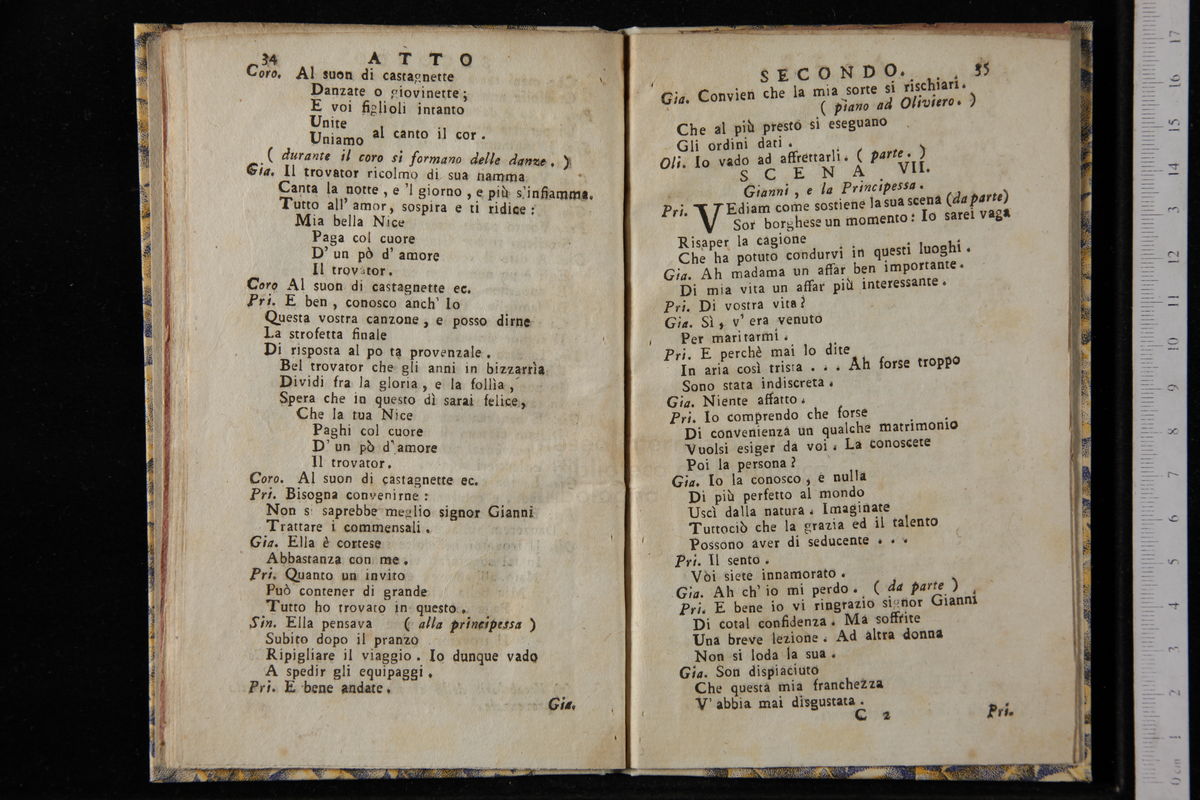 34 ATTO
Coro. Al suon di castagnette
Danzate o giovinette;
E voi figlioli intanto
Unite
Uniamo al canto il cor.
( durante il coro si formano delle danze. )
Gia. Il trovator ricolmo di sua namma
Canta la notte, e 'l giorno, e più s'infiamma.
Tutto all' amor, sospira e ti ridice:
Mia bella Nice
Paga col cuore
D' un pò d' amore
Il trovator.
Coro Al suon di castagnette ec.
Pri. E ben, conosco anch' Io
Questa vostra canzone, e posso dirne
La strofetta finale
Di risposta al po ta provenzale.
Bel trovator che gli anni in bizzarrìa
Dividi fra la gloria, e la follìa,
Spera che in questo dì sarai felice,
Che la tua Nice
Paghi col cuore
D' un pò d' amore
Il trovator.
Coro. Al suon di castagnette ec.
Pri. Bisogna convenirne:
Non si saprebbe meglio signor Gianni
Trattare i commensali.
Gia. Ella è cortese
Abbastanza con me.
Pri. Quanto un invito
Può contener di grande
Tutto ho trovato in questo.
Sin. Ella pensava ( alla principessa )
Subito dopo il pranzo
Ripigliare il viaggio. Io dunque vado
A spedir gli equipaggi.
Pri. E bene andate.
Gia.
SECONDO. 35
Gia. Convien che la mia sorte si rischiari.
( piano ad Oliviero. )
Che al più presto si eseguano
Gli ordini dati.
Oli. Io vado ad affrettarli. ( parte. )
SCENA VII.
Gianni, e la Principessa.
Pri. VEdiam come sostiene la sua scena (da parte)
Sor borghese un momento: Io sarei vaga
Risaper la cagione
Che ha potuto condurvi in questi luoghi.
Gia. Ah madama un affar ben importante.
Di mia vita un affar più interessante.
Pri. Di vostra vita?
Gia. Sì, v' era venuto
Per maritarmi.
Pri. E perchè mai lo dite
In aria così trista . . . Ah forse troppo
Sono stata indiscreta.
Gia. Niente affatto.
Pri. Io comprendo che forse
Di convenienza un qualche matrimonio
Vuolsi esiger da voi. La conoscete
Poi la persona?
Gia. Io la conosco, e nulla
Di più perfetto al mondo
Uscì dalla natura. Imaginate
Tuttociò che la grazia ed il talento
Possono aver di seducente . . .
Pri. Il sento.
Vòi siete innamorato.
Gia. Ah ch' io mi perdo. ( da parte )
Pri. E bene io vi ringrazio signor Gianni
Di cotal confidenza. Ma soffrite
Una breve lezione. Ad altra donna
Non si loda la sua.
Gia. Son dispiaciuto
Che questa mia franchezza
V' abbia mai disgustata.
C 2 Pri.
0 cm 1 2 3 4 5 6 7 8 9 10 11 12 13 14 15 16 17